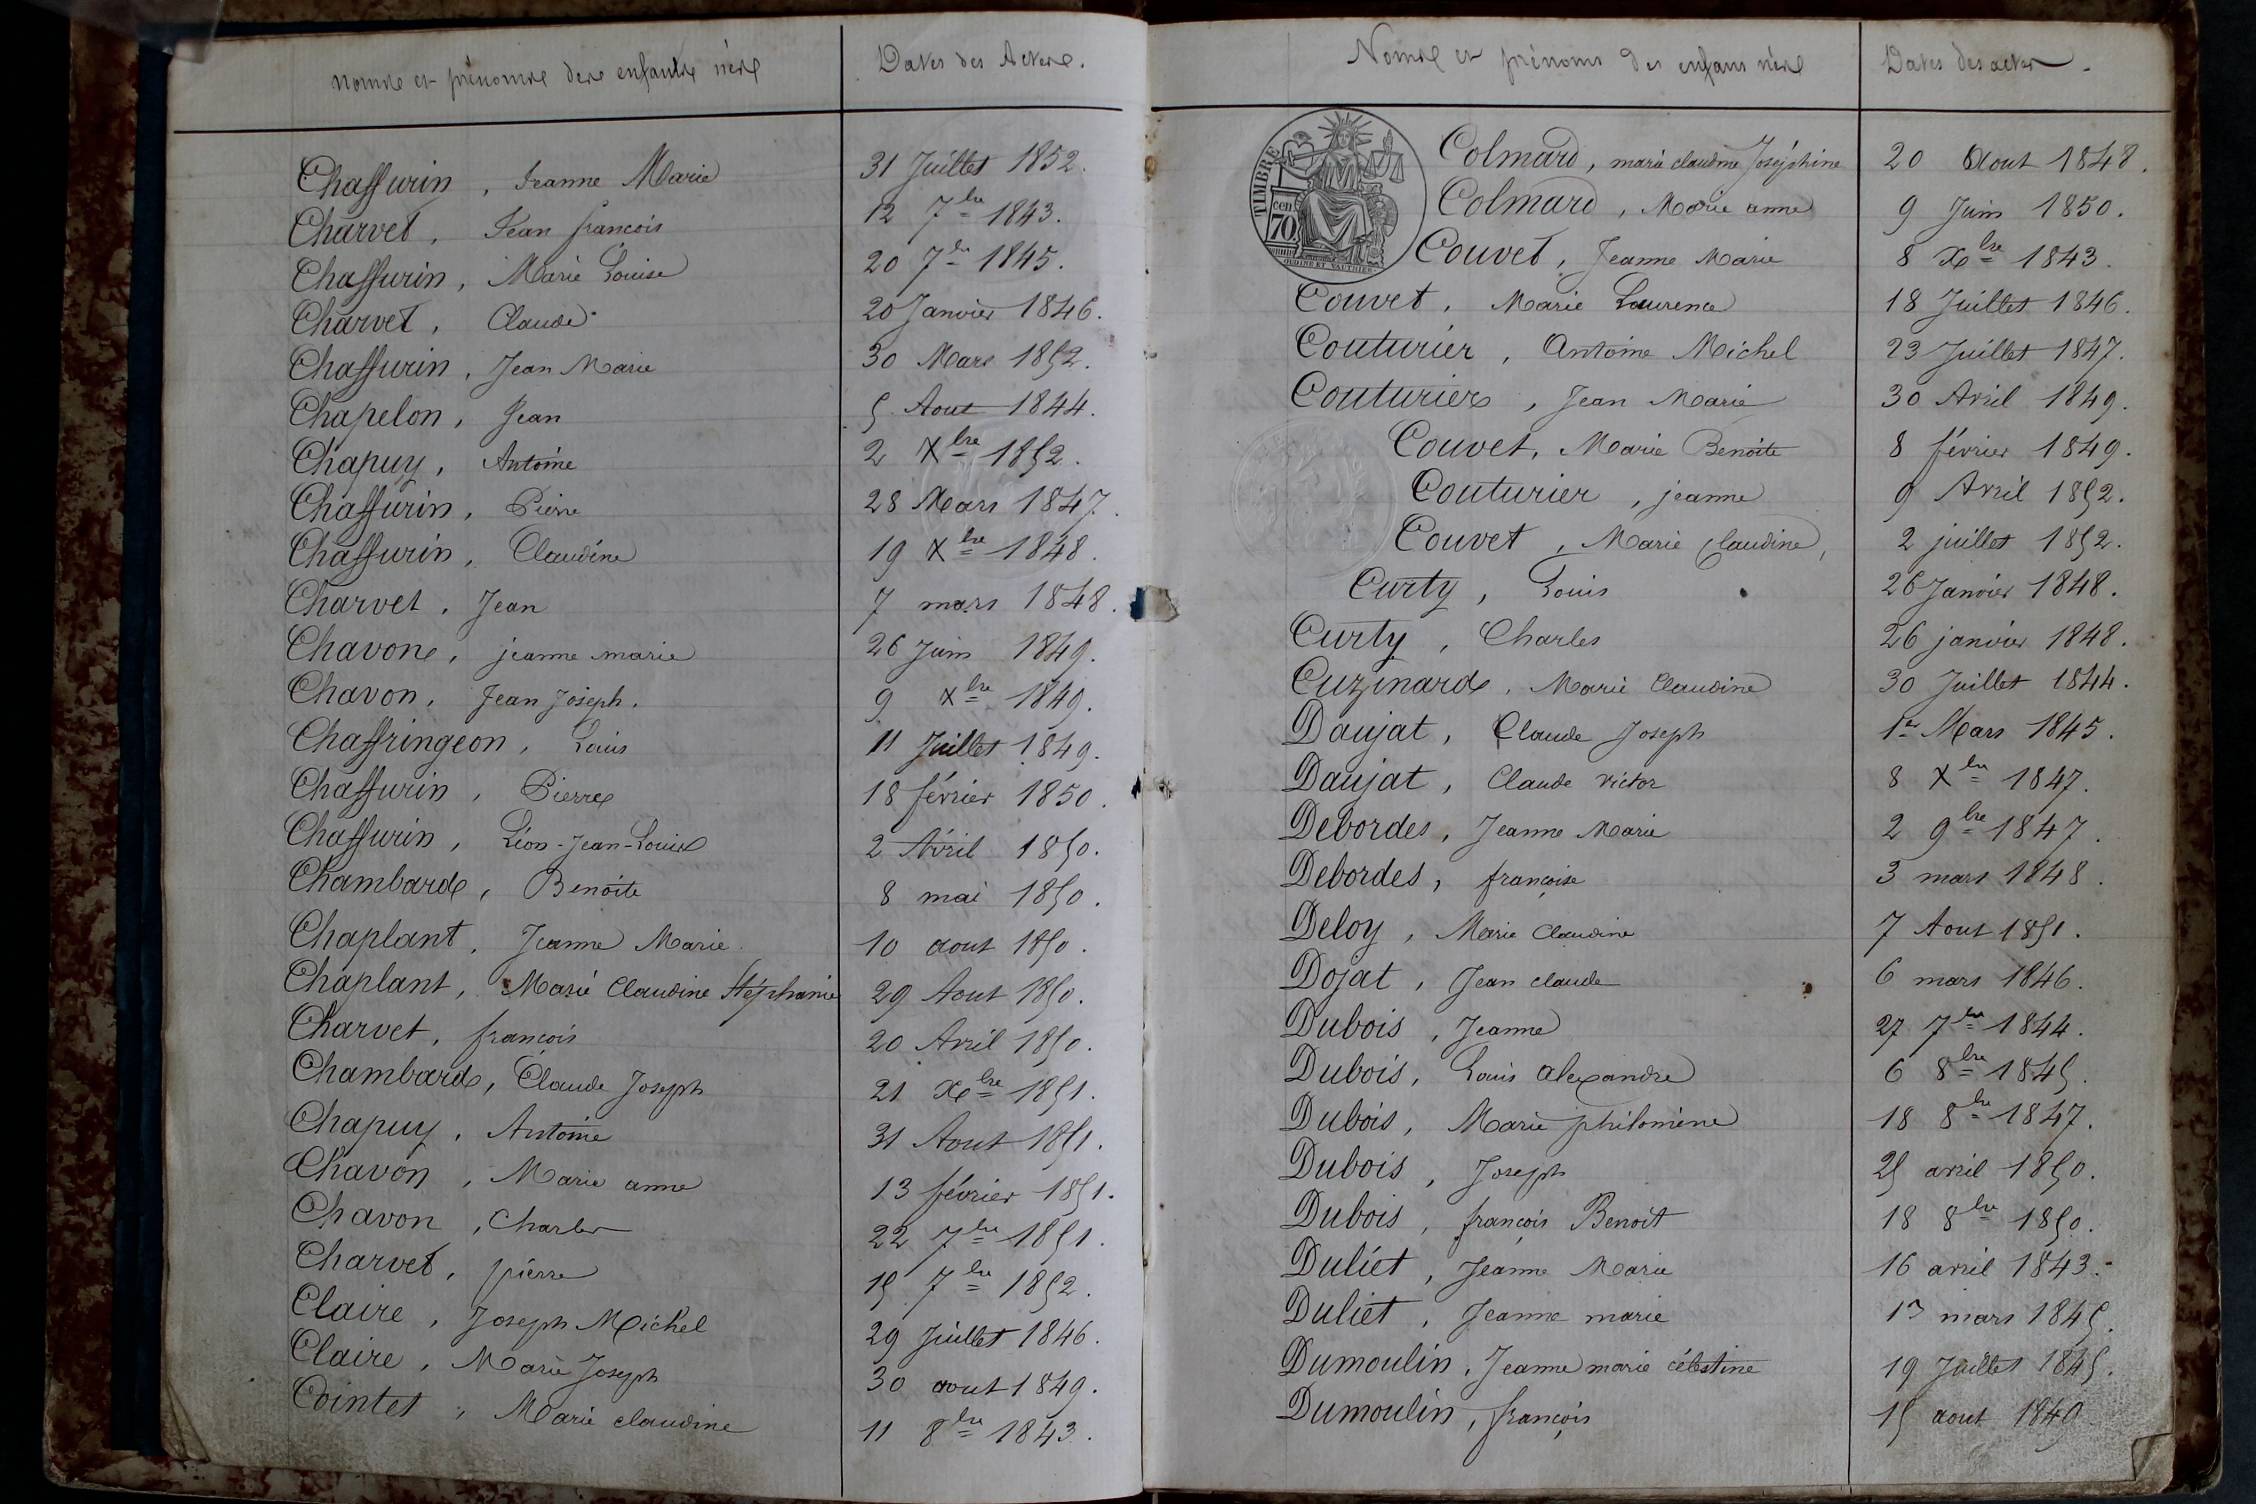 Noms et prénoms des enfants nés
Dates des Actes.
Chaffurin, Jeanne Marie 31 Juillet 1852.
Charvet, Jean françois 12 7bre 1843.
Chaffurin, Marie Louise 20 7bre 1845.
Charvet, Claude 20 Janvier 1846.
Chaffurin, Jean Marie 30 Mars 1852.
Chapelon, Jean 5 Aout 1844.
Chapuy, Antoine 2 Xbre 1852.
Chaffurin, Pierre 28 Mars 1847.
Chaffurin, Claudine 19 Xbre 1848.
Charvet, Jean 7 mars 1848.
Chavon, jeanne marie 26 Juin 1849.
Chavon, Jean Joseph. 9 Xbre 1849.
Chaffringeon, Louis 11 Juillet 1849.
Chaffurin, Pierre 18 février 1850.
Chaffurin, Léon-Jean-Louis 2 Avril 1850.
Chambard, Benoite 8 mai 1850.
Chaplant, Jeanne Marie 10 aout 1850.
Chaplant, Marie Claudine Stéphanie 29 Aout 1850.
Charvet, françois 20 Avril 1850.
Chambard, Claude Joseph 21 Xbre 1851.
Chapuy, Antoine 31 Aout 1851.
Chavon, Marie anne 13 février 1851.
Chavon, Charles 22 7bre 1851.
Charvet, pierre 15 7bre 1852.
Claire, Joseph Michel 29 Juillet 1846.
Claire, Marie Joseph 30 aout 1849.
Cointet, Marie claudine 11 8bre 1843.
Noms et prénoms des enfans nés
Dates des actes.
TIMBRE
cen
70
OUDINÉ ET VAUTHIER
Colmard, marie claudine Joséphine 20 Aout 1848.
Colmard, Marie anne 9 Juin 1850.
Couvet, Jeanne Marie 8 Xbre 1843.
Couvet, Marie Laurence 18 Juillet 1846.
Couturier, Antoine Michel 23 Juillet 1847.
Couturier, Jean Marie 30 Avril 1849.
Couvet, Marie Benoite 8 février 1849.
Couturier, jeanne 9 Avril 1852.
Couvet, Marie Claudine, 2 juillet 1852.
Curty, Louis 26 Janvier 1848.
Curty, Charles 26 janvier 1848.
Cuzinard, Marie Claudine 30 Juillet 1844.
Daujat, Claude Joseph 1er Mars 1845.
Daujat, Claude victor 8 Xbre 1847.
Debordes, Jeanne Marie 2 9bre 1847.
Debordes, françoise 3 mars 1848.
Deloy, Marie Claudine 7 Aout 1851.
Dojat, Jean claude 6 mars 1846.
Dubois, Jeanne 27 7bre 1844.
Dubois, Louis alexandre 6 8bre 1845.
Dubois, Marie philomène 18 8bre 1847.
Dubois, Joseph 25 avril 1850.
Dubois, françois Benoit 18 8bre 1850.
Duliet, Jeanne Marie 16 avril 1843.
Duliet, Jeanne marie mars 1845.
Dumoulin, Jeanne marie célestine 19 Juillet 1845.
Dumoulin, françois 15 aout 1849